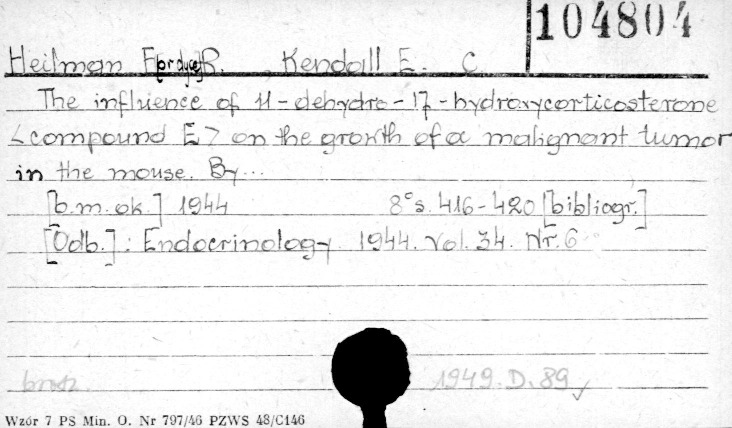 104804
Heilman F[ordyce] R., Kendall E. C.
The influence of 11-dehydro-17-hydroxycorticosterone
<compound E> on the growth of a malignant tumor
in the mouse. By...
[b.m.ok.] 1944 8° s. 416-420 [bibliogr.]
[Odb.]: Endocrinology 1944. Vol. 34. Nr. 6
brosz. 1949.D.89
Wzór 7 PS Min. O. Nr 797/46 PZWS 48/C146